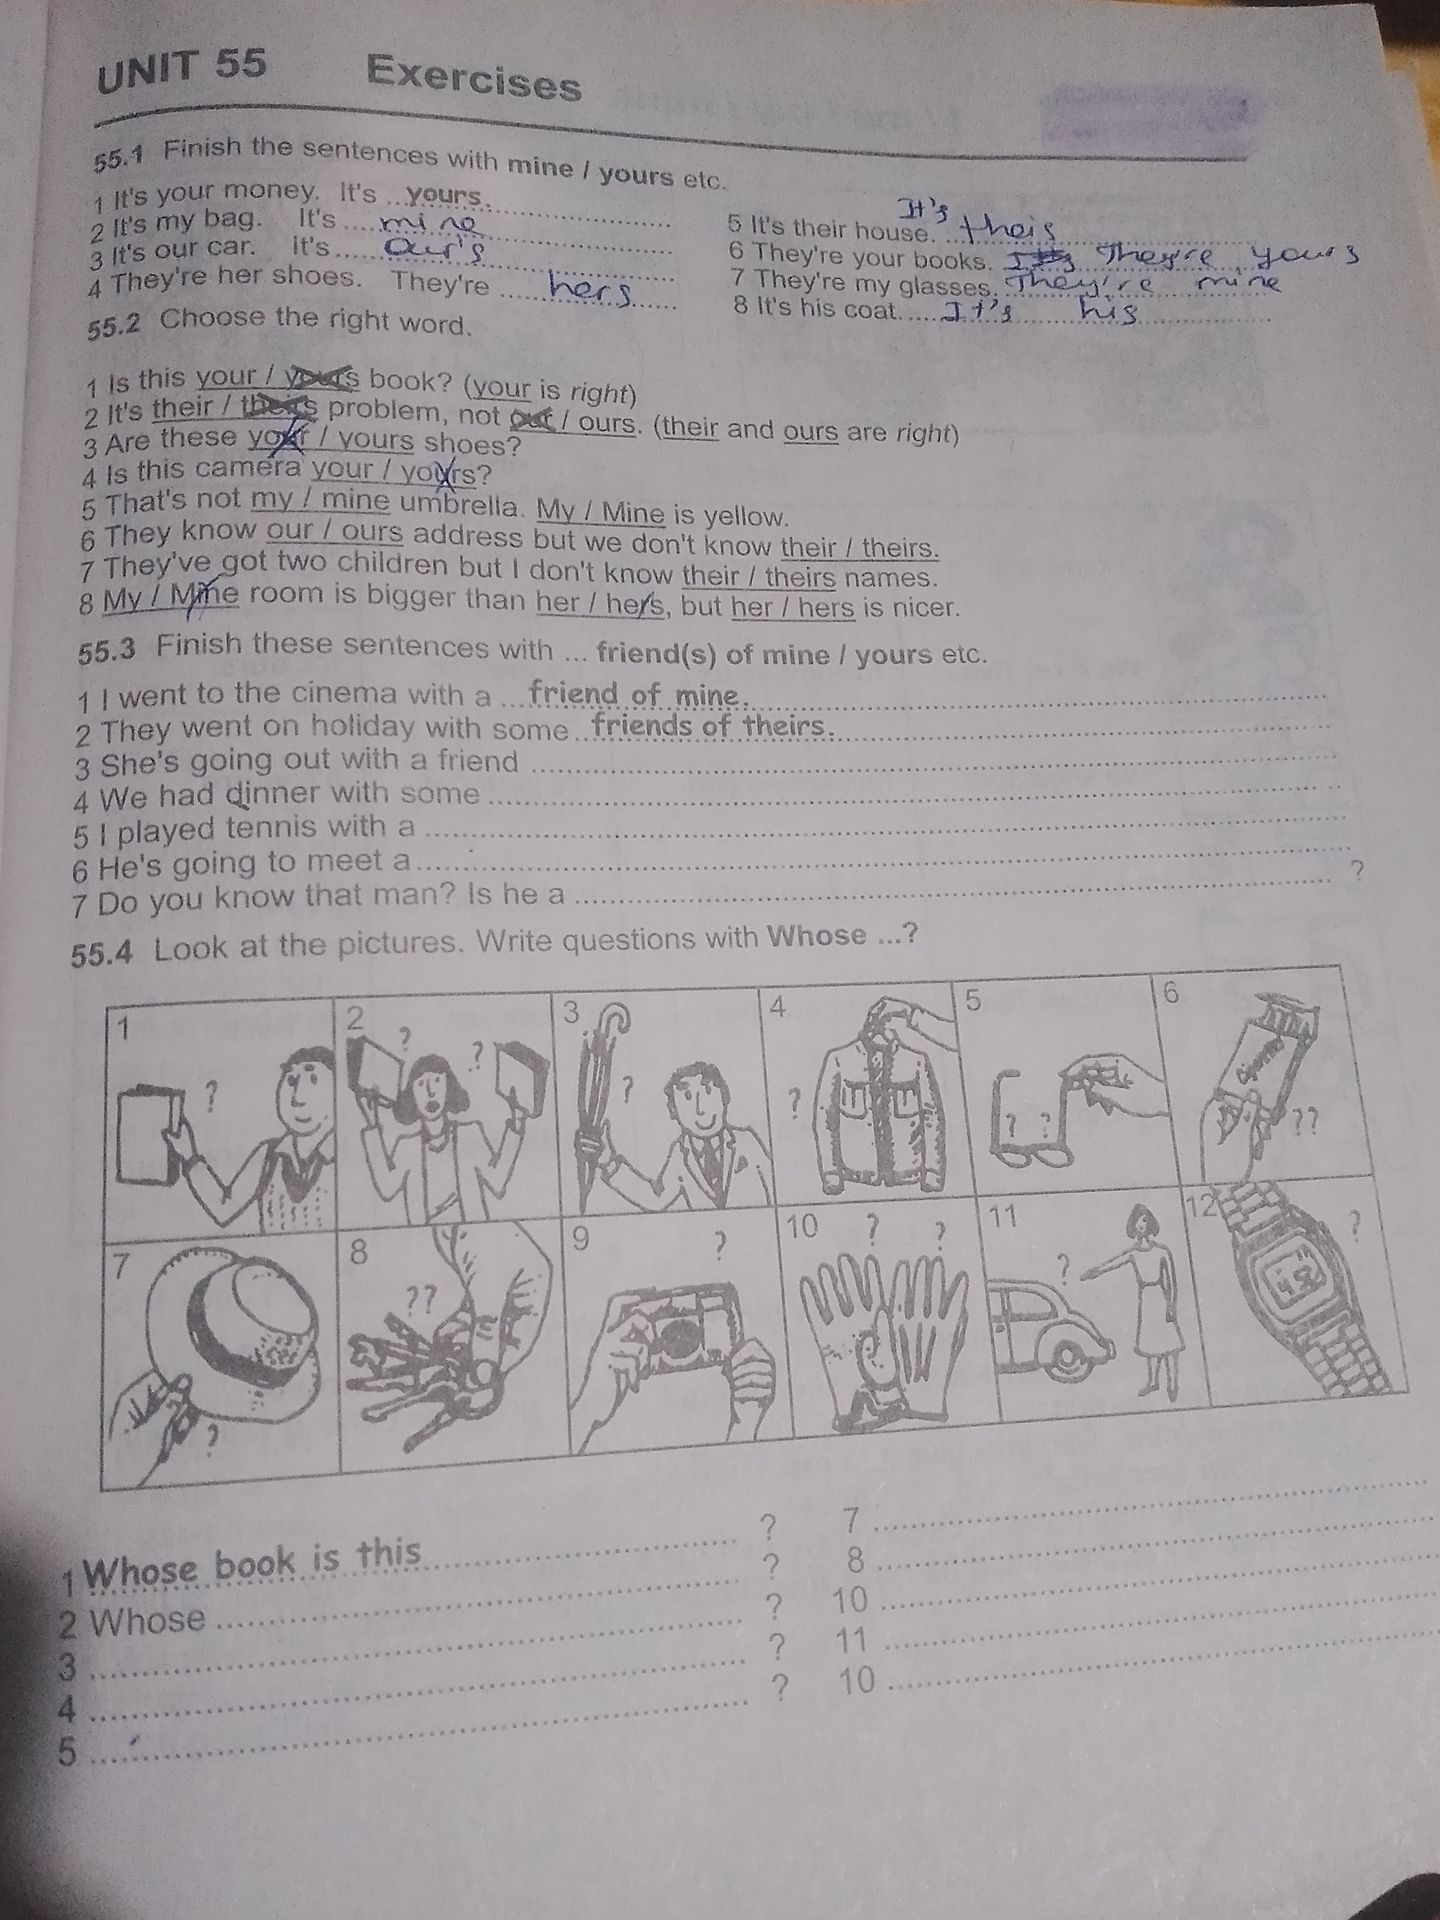 UNIT 55 Exercises
55.1 Finish the sentences with mine / yours etc.
1 It's your money. It's ...yours.
2 It's my bag. It's .... mine
3 It's our car. It's..... our's
4 They're her shoes. They're ..... hers
5 It's their house. It's theis
6 They're your books. They're yours
7 They're my glasses. They're mine
8 It's his coat..... It's his
55.2 Choose the right word.
1 Is this your / yours book? (your is right)
2 It's their / theirs problem, not our / ours. (their and ours are right)
3 Are these your / yours shoes?
4 Is this camera your / yours?
5 That's not my / mine umbrella. My / Mine is yellow.
6 They know our / ours address but we don't know their / theirs.
7 They've got two children but I don't know their / theirs names.
8 My / Mine room is bigger than her / hers, but her / hers is nicer.
55.3 Finish these sentences with ... friend(s) of mine / yours etc.
1 I went to the cinema with a ...friend of mine.
2 They went on holiday with some..friends of theirs.
3 She's going out with a friend
4 We had dinner with some
5 I played tennis with a
6 He's going to meet a
7 Do you know that man? Is he a ?
55.4 Look at the pictures. Write questions with Whose ...?
1 ?
2 ? ?
3 ?
4 ?
5 ? ?
6 ??
7 ?
8 ??
9 ?
10 ? ?
11 ?
12 ?
1 Whose book is this ?
2 Whose ?
3 ?
4 ?
5 ?
7
8
10
11
10